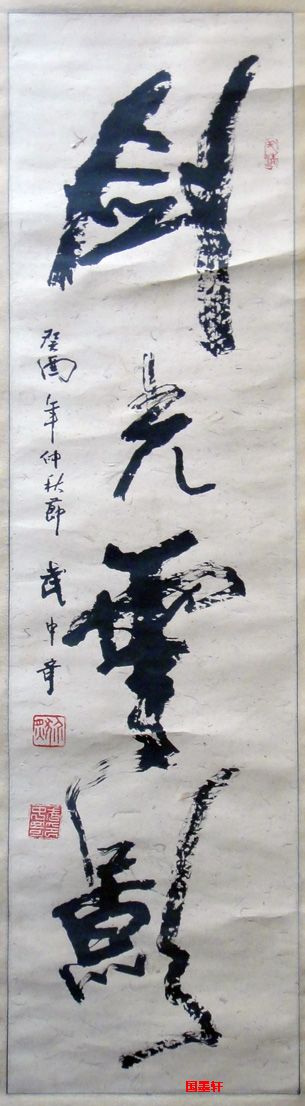 劍光雲影
癸酉年仲秋節 武中奇
国墨轩